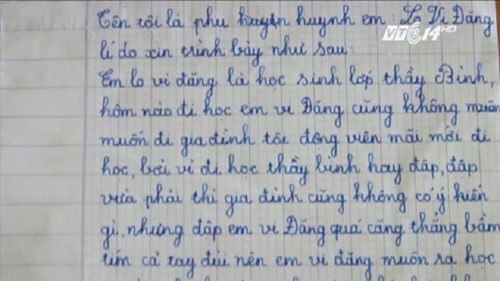 VTC14 HD
Tên tôi là phu huyn huynh em: Lo Vi Đăng
lí do xin trình bày như sau:
Em lo vi đăng là học sinh lớp thầy Bình,
hôm nào đi học em vi Đăng cũng không muôn
muốn đi gia đình tôi đông viên mãi mới đi
học, bởi vì đi học thầy bình hay đâp, đâp
vừa phải thì gia đình cũng không có ý kiến
gì, nhưng đâp em vi Đăng quá căng thẳng bầm
tím cả tay đùi nên em vi đăng muốn ra học